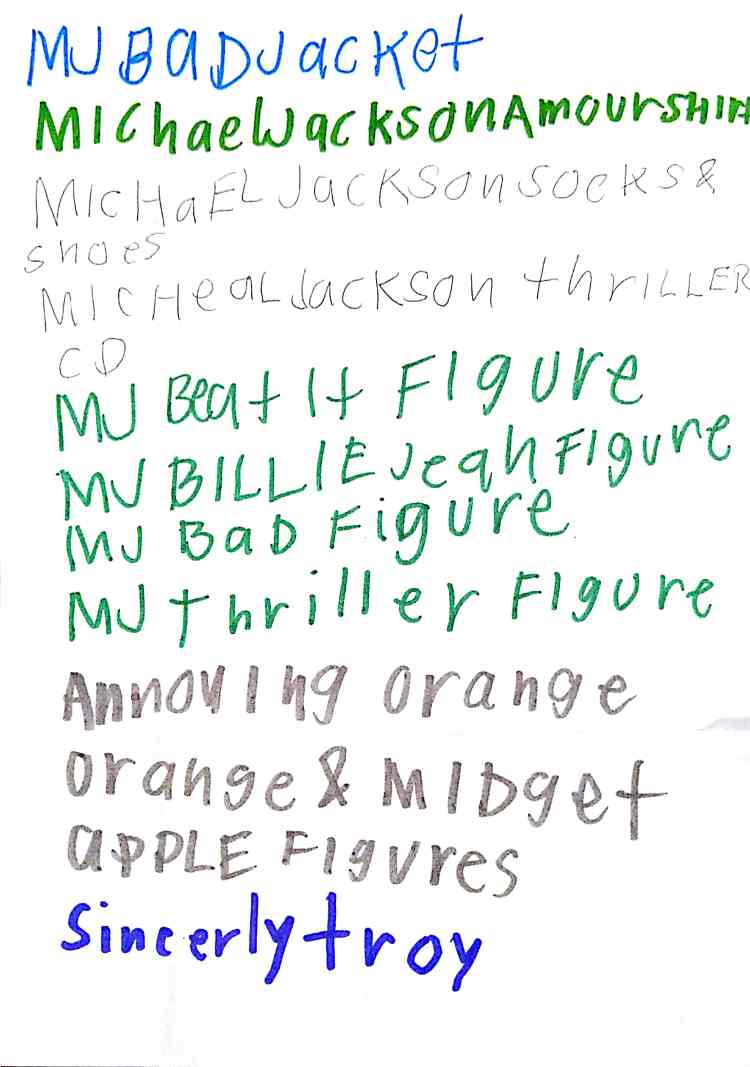 MJ BaDJacket
MIchaelJacksonAmourSHIrt
MIcHaELJacKSonsocks &
shoes
MIcHeaLJacKson thrILLER
CD
MJ Beat It FIgure
MJ BILLIE JeanFIgure
MJ BaD Figure
MJ thriller FIgure
AnnoyIng orange
orange & MIDget
apPLE FIgures
Sincerly troy